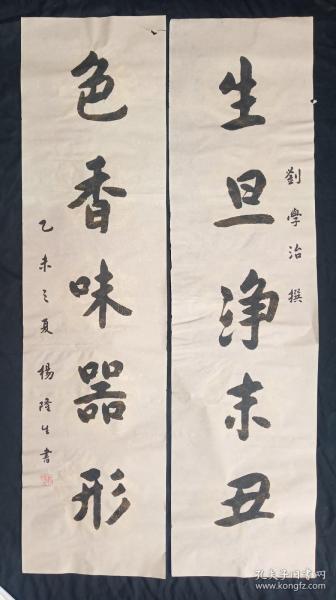 生旦净末丑
劉學治撰
色香味器形
乙未之夏 楊隆生書
孔夫子旧书网
www.kongfz.com